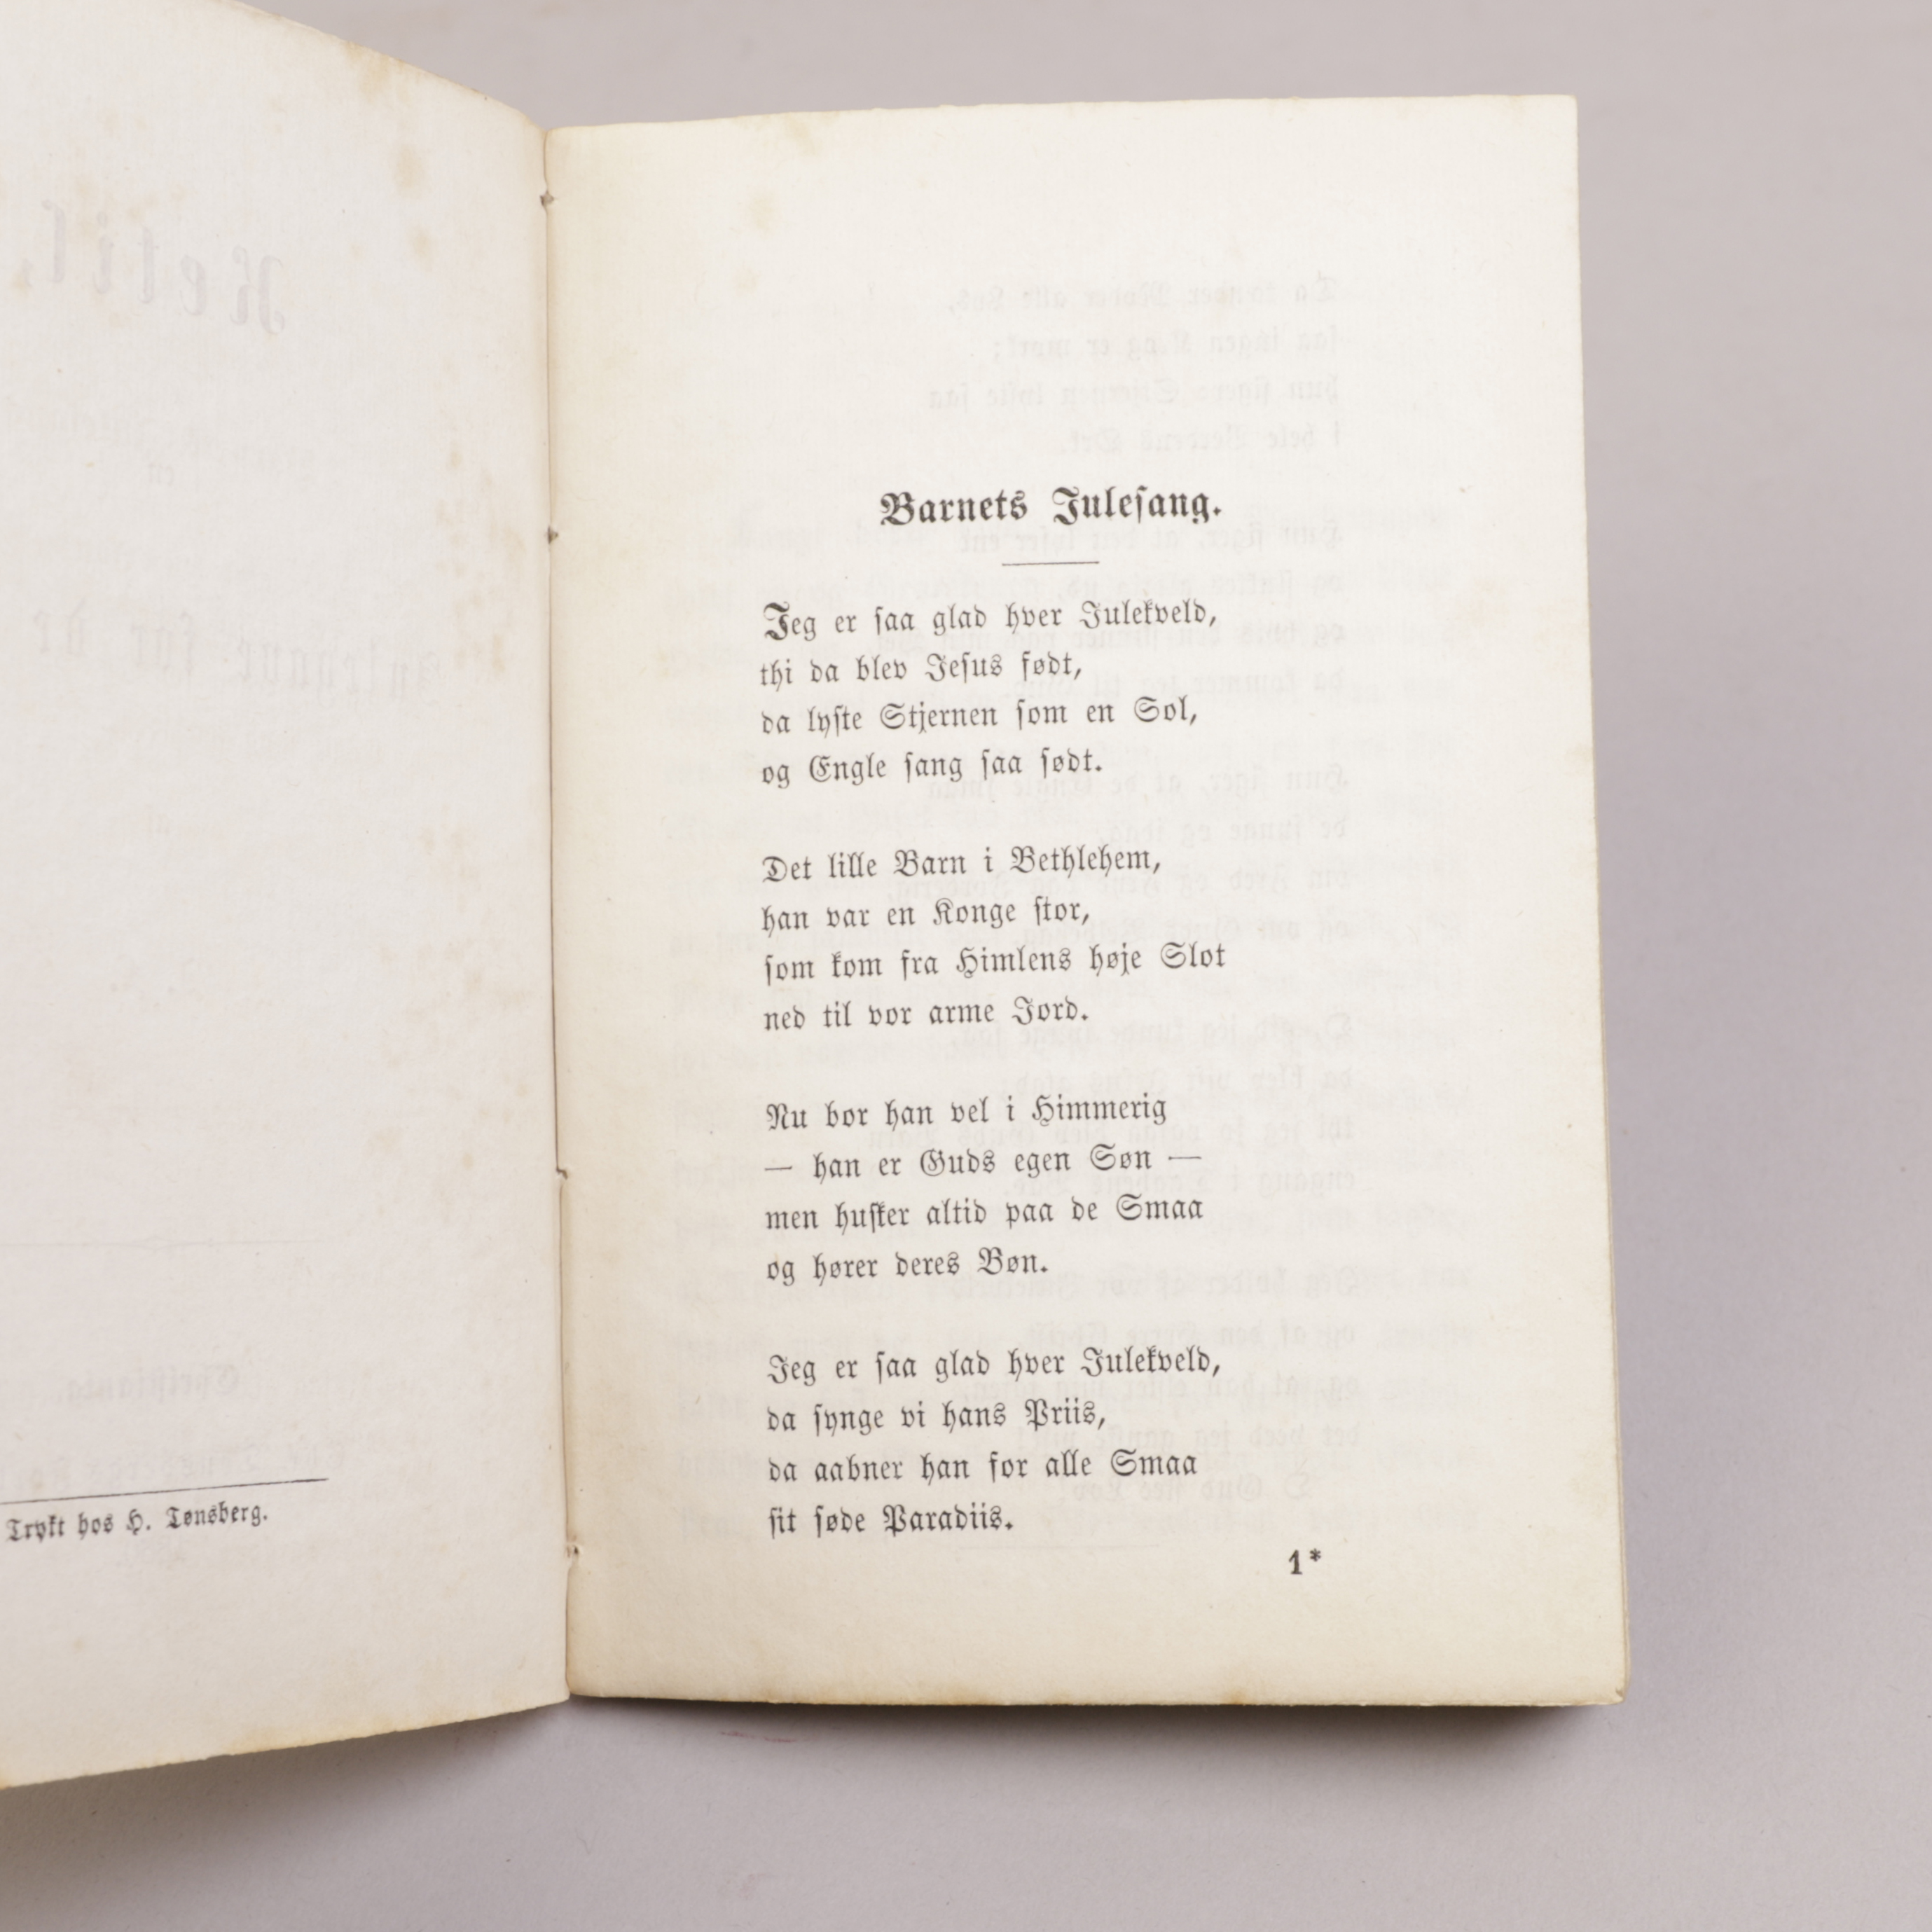 Trykt hos H. Tønsberg.
Barnets Julesang.
Jeg er saa glad hver Julekveld,
thi da blev Jesus født,
da lyste Stjernen som en Sol,
og Engle sang saa sødt.
Det lille Barn i Bethlehem,
han var en Konge stor,
som kom fra Himlens høje Slot
ned til vor arme Jord.
Nu bor han vel i Himmerig
— han er Guds egen Søn —
men husker altid paa de Smaa
og hører deres Bøn.
Jeg er saa glad hver Julekveld,
da synge vi hans Priis,
da aabner han for alle Smaa
sit søde Paradiis.
1*